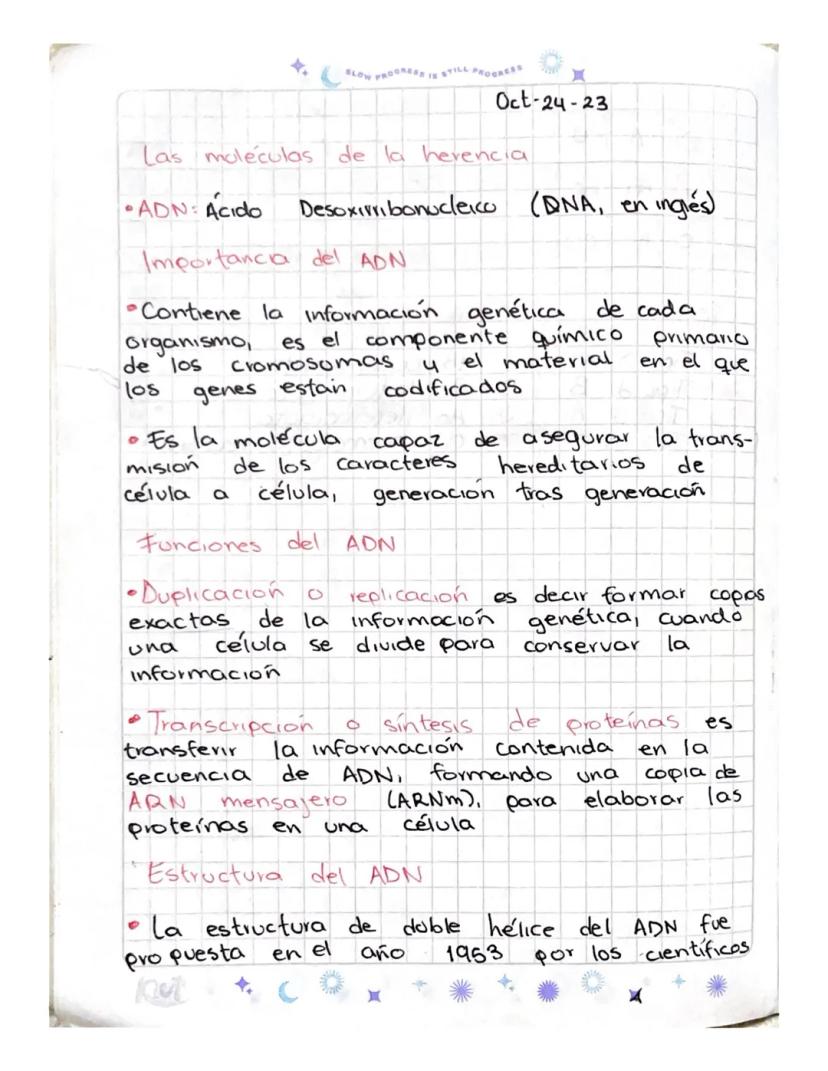 SLOW PROGRESS IS STILL PROGRESS
Oct-24-23
Las moléculas de la herencia
• ADN: Ácido Desoxirribonucleico (DNA, en inglés)
Importancia del ADN
• Contiene la información genética de cada
organismo, es el componente químico primario
de los cromosomas y el material en el que
los genes están codificados
• Es la molécula capaz de asegurar la trans-
misión de los caracteres hereditarios de
célula a célula, generación tras generación
Funciones del ADN
• Duplicación o replicación es decir formar copias
exactas de la información genética, cuando
una célula se divide para conservar la
información
• Transcripción o síntesis de proteínas es
transferir la información contenida en la
secuencia de ADN, formando una copia de
ARN mensajero (ARNm), para elaborar las
proteínas en una célula
Estructura del ADN
• La estructura de doble hélice del ADN fue
propuesta en el año 1953 por los científicos